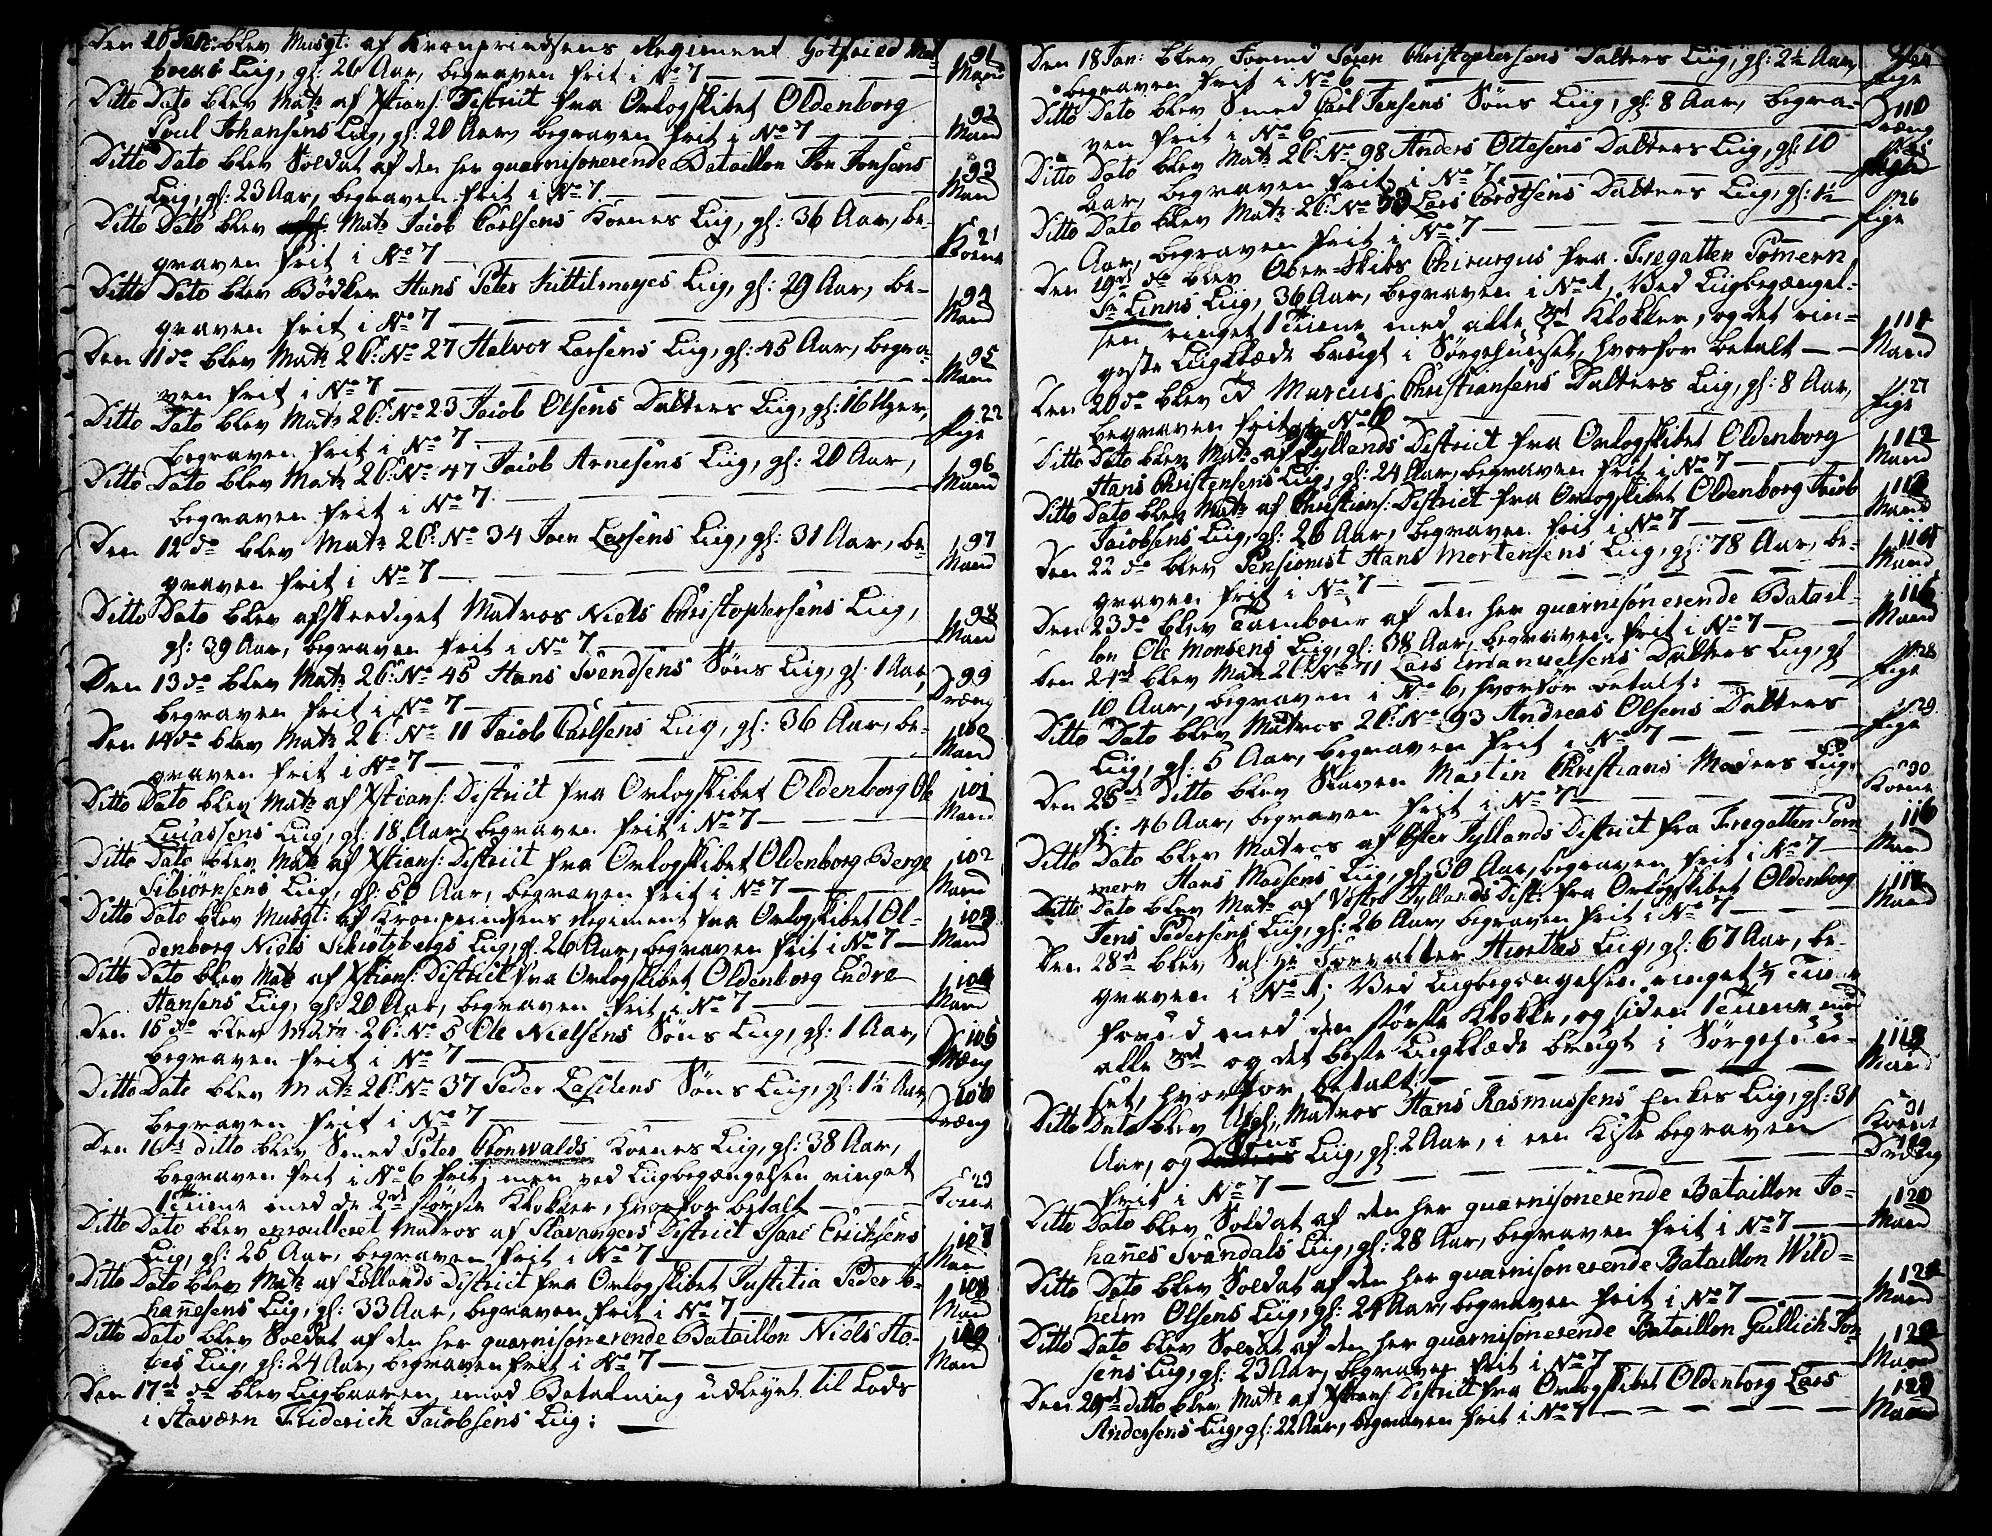 Den 10 Jan: blev Musqt: af Kronprindsens Regiment Gotfried 91
Liig, gl: 26 Aar, begraven frit i No 7 — Mand
Ditto Dato blev Matr af Xtians: District fra Orlogskibet Oldenborg 92
Poul Johansens Liig, gl: 20 Aar, begraven frit i No 7 — Mand
Ditto Dato blev Soldat af den her guarnisonerende Bataillon Jon Jonsens 93
Liig, gl: 23 Aar, begraven frit i No 7 — Mand
Ditto Dato blev Matr Jacob Carlsens Koenes Liig, gl: 36 Aar, be- 21
graven frit i No 7 — Koene
Ditto Dato blev Bödker Hans Peter Kittilmeyes Liig, gl: 29 Aar, be- 94
graven frit i No 7 — Mand
Den 11 do blev Matr 26: No 27 Halvor Larsens Liig, gl: 45 Aar, begra- 95
ven frit i No 7 — Mand
Ditto Dato blev Matr 26: No 23 Jacob Olsens Datters Liig, gl: 16 Uger, 22
begraven frit i No 7 — Pige
Ditto Dato blev Matr 26: No 47 Jacob Arnesens Liig, gl: 20 Aar, 96
begraven frit i No 7 — Mand
Den 12 do blev Matr 26: No 34 Joen Larsens Liig, gl: 31 Aar, be- 97
graven frit i No 7 — Mand
Ditto Dato blev afskeediget Matros Niels Christophersens Liig, 98
gl: 39 Aar, begraven frit i No 7 — Mand
Den 13 do blev Matr 26: No 45 Hans Svendsens Söns Liig, gl: 1 Aar, 99
begraven frit i No 7 — Dræng
Den 14 do blev Matr 26: No 11 Jacob Carlsens Liig, gl: 36 Aar, be- 100
graven frit i No 7 — Mand
Ditto Dato blev Matr af Xtians: District fra Orlogskibet Oldenborg Ole 101
Lucassens Liig, gl: 18 Aar, begraven frit i No 7 — Mand
Ditto Dato blev Matr af Xtians: District fra Orlogskibet Oldenborg Berge 102
Sibiörnsens Liig, gl: 50 Aar, begraven frit i No 7 — Mand
Ditto Dato blev Musqt: af Kronprindsens Regiment fra Orlogskibet Ol- 103
denborg Niels Schiötzbergs Liig, gl: 26 Aar, begraven frit i No 7 — Mand
Ditto Dato blev Matr af Xtians: District fra Orlogskibet Oldenborg Endre 104
Hansens Liig, gl: 20 Aar, begraven frit i No 7 — Mand
Den 15 do blev Matr 26: No 5 Ole Nielsens Söns Liig, gl: 1 Aar, 105
begraven frit i No 7 — Dræng
Ditto Dato blev Matr 26: No 37 Peder Laschens Söns Liig, gl: 1½ Aar, 106
begraven frit i No 7 — Dræng
Den 16de ditto blev Smed Peter Gronwalds Koenes Liig, gl: 38 Aar,
begraven frit i No 6 frit, men ved Liigbegængelsen ringet 23
1 Tiime med de 2de störste Klokker, hvorfor betalt — Koene
Ditto Dato blev enroulleret Matros af Stavangers District Isaac Ericksens 107
Liig, gl: 25 Aar, begraven frit i No 7 — Mand
Ditto Dato blev Matr af Lollands District fra Orlogskibet Justitia Peder Jo- 108
hañesens Liig, gl: 33 Aar, begraven frit i No 7 — Mand
Ditto Dato blev Soldat af den her guarnisonerende Bataillon Niels 109
Liig, gl: 24 Aar, begraven frit i No 7 — Mand
Den 17de do blev Liigbaaren mod Betalning udleynt til Lods
i Stavern Friderich Jacobsens Liig: —
Den 18 Jan: blev Tomd Sören Christophersens Datters Liig, gl: 2½ Aar, 24
begraven frit i No 6 — Pige
Ditto Dato blev Smed Carl Jensens Söns Liig, gl: 8 Aar, begra- 110
ven frit i No 6 — Dræng
Ditto Dato blev Matr 26: No 98 Anders Ottesens Datters Liig, gl: 10 25
Aar, begraven frit i No 7 — Pige
Ditto Dato blev Matr 26: No 59 Lars Cordtsens Datters Liig, gl: 1½ 26
Aar, begraven frit i No 7 — Pige
Den 19de do blev Ober-Skibs Chirurgus fra Fregatten Pomern,
Sr Linns Liig, 36 Aar, begraven i No 1, Ved Liigbegængel-
sen ringet 1 Tiime med alle 3de Klokker, og det rin- 111
geste Liigklæde brugt i Sörgehuuset, hvorfor betalt — Mand
Den 20 do blev Marcus Christiansens Datters Liig, gl: 8 Aar, 27
begraven frit i No 6 — Pige
Ditto Dato blev Matr af Jyllands District fra Orlogskibet Oldenborg 112
Hans Christensens Liig, gl: 24 Aar, begraven frit i No 7 — Mand
Ditto Dato blev Matr af Christians: District fra Orlogskibet Oldenborg Jacob 113
Jacobsens Liig, gl: 26 Aar, begraven frit i No 7 — Mand
Den 22 do blev Pensionist Hans Mortensens Liig, gl: 78 Aar, be- 114
graven frit i No 7 — Mand
Den 23 do blev Tambour af den her guarnisonerende Batail- 115
lon Ole Monsens Liig, gl: 38 Aar, begraven frit i No 7 — Mand
Den 24de blev Matr 26: No 71 Lars Emanuelsens Datters Liig, gl 28
10 Aar, begraven i No 6, hvorfor betalt: — Pige
Ditto Dato blev Matros 26: No 93 Andreas Olsens Datters 29
Liig, gl: 5 Aar, begraven frit i No 7 — Pige
Den 25de ditto blev Slaven Martin Christians Moders Liig, 30
gl: 46 Aar, begraven frit i No 7 — Koene
Ditto Dato blev Matros af Öster Jyllands District fra Fregatten Pom- 116
mern Hans Madsens Liig, gl: 30 Aar, begraven frit i No 7 — Mand
Ditto Dato blev Matr af Vester Jyllands Dist: fra Orlogskibet Oldenborg 117
Jens Pedersens Liig, gl: 26 Aar, begraven frit i No 7 — Mand
Den 28de blev Sal: Hr Forvalter Liig, gl: 67 Aar, be-
graven i No 1; Ved Liigbegængelsen ringet ¼ Tiime
forud med den störste Klokke, og siden 1 Tiime med
alle 3de og det beste Liigklæde brugt i Sörgehuu- 118
set, hvorfor betalt: — Mand
Ditto Dato blev Afgl: Matros Hans Rasmussens Enkes Liig, gl: 31 31
Aar, og Söns Liig, gl: 2 Aar, i een Kiste begraven Koene 119
frit i No 7 — Dræng
Ditto Dato blev Soldat af den her guarnisonerende Bataillon Jo- 120
hañes Svandals Liig, gl: 28 Aar, begraven frit i No 7 — Mand
Ditto Dato blev Soldat af den her guarnisonerende Bataillon Wild- 121
helm Olsens Liig, gl: 24 Aar, begraven frit i No 7 — Mand
Ditto Dato blev Soldat af den her guarnisonerende Bataillon Gullich Jon- 122
sens Liig, gl: 23 Aar, begraven frit i No 7 — Mand
Den 29de ditto blev Matr af Xtians: District fra Orlogskibet Oldenborg Lars 123
Andersens Liig, gl: 22 Aar, begraven frit i No 7 — Mand